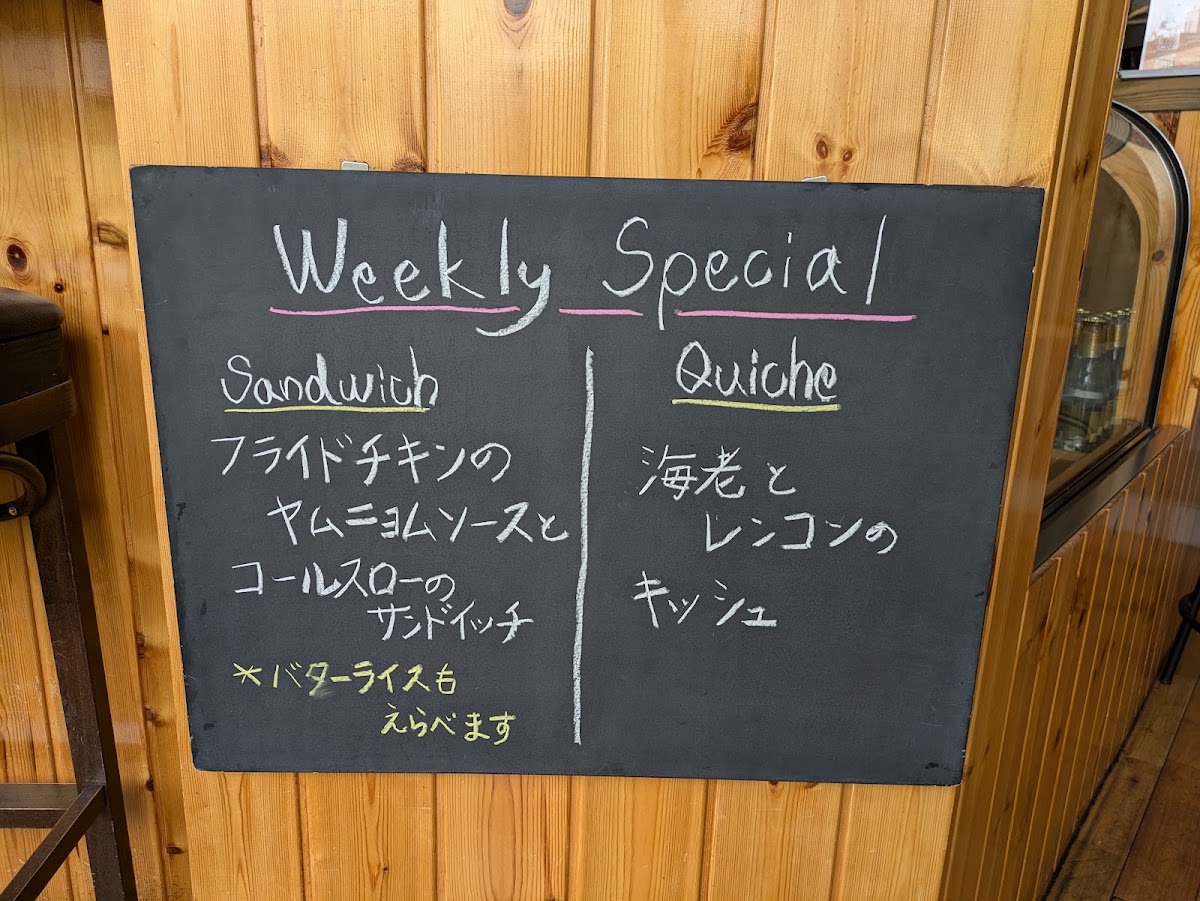 Weekly Special
Sandwich
フライドチキンの
ヤムニョムソースと
コールスローの
サンドイッチ
*バターライスも
えらべます
Quiche
海老と
レンコンの
キッシュ